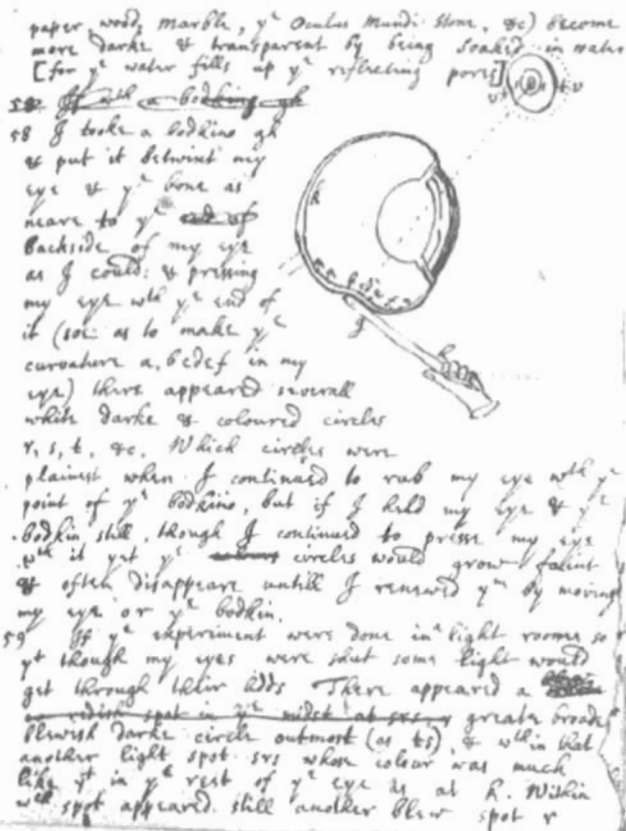 paper, wood, marble, yᵉ Oculus Mundi Stone, &c) become
more darke & transparent by being soaked in water
[for yᵉ water fills up yᵉ reflecting pores]
58 If wth a bodkine gh
58 I tooke a bodkine gh
& put it betwixt my
eye & yᵉ bone as
neare to yᵉ end of
backside of my eye
as I could: & pressing
my eye wth yᵉ end of
it (soe as to make yᵉ
curvature a, bcdef in my
eye) there appeared severall
white darke & coloured circles
r, s, t, &c. Which circles were
plainest when I continued to rub my eye wth yᵉ
point of yᵉ bodkine, but if I held my eye & yᵉ
bodkin still, though I continued to presse my eye
wth it yet yᵉ circles would grow faint
& often disappeare untill I renewed yᵐ by moving
my eye or yᵉ bodkin.
59 If yᵉ experiment were done in a light roome so
yt though my eyes were shut some light would
get through their lidds There appeared a
redish spot in yᵉ midst at srs greate broade
blewish darke circle outmost (as ts), & wthin that
another light spot srs whose colour was much
like yt in yᵉ rest of yᵉ eye as at k. Within
wch spot appeared still another blew spot r
k
a b c d e f
g
h
r s t v